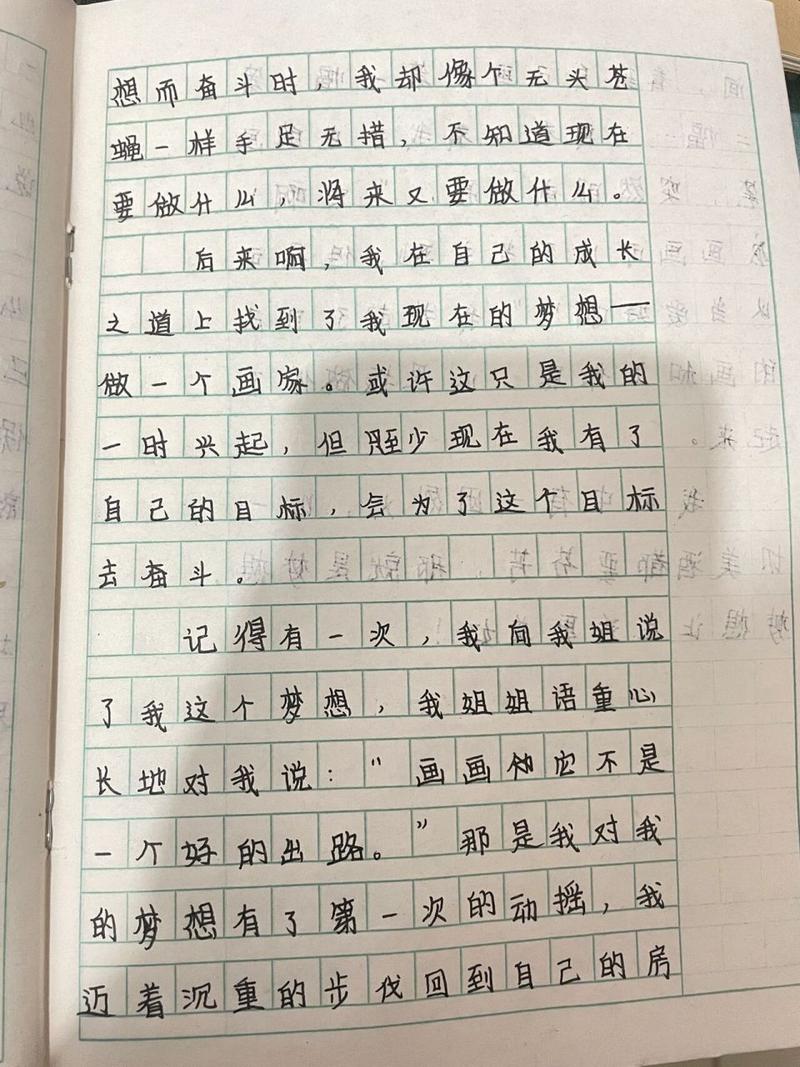 想而奋斗时，我却像个无头苍
蝇一样手足无措，不知道现在
要做什么，将来又要做什么。
后来啊，我在自己的成长
之道上找到了我现在的梦想——
做一个画家。或许这只是我的
一时兴起，但至少现在我有了
自己的目标，会为了这个目标
去奋斗。
记得有一次，我向我姐说
了我这个梦想，我姐姐语重心
长地对我说："画画它不是
一个好的出路。"那是我对我
的梦想有了第一次的动摇，我
迈着沉重的步伐回到自己的房